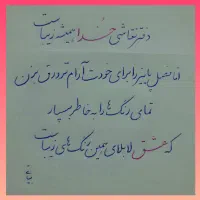 دفتر نقاشی خدا همیشه زیباست
اما فصل پاییز را برای خودت آرام تر ورق بزن
تمامی رنگ ها را به خاطر بسپار
که عشق لا بلای همین رنگ های زیباست